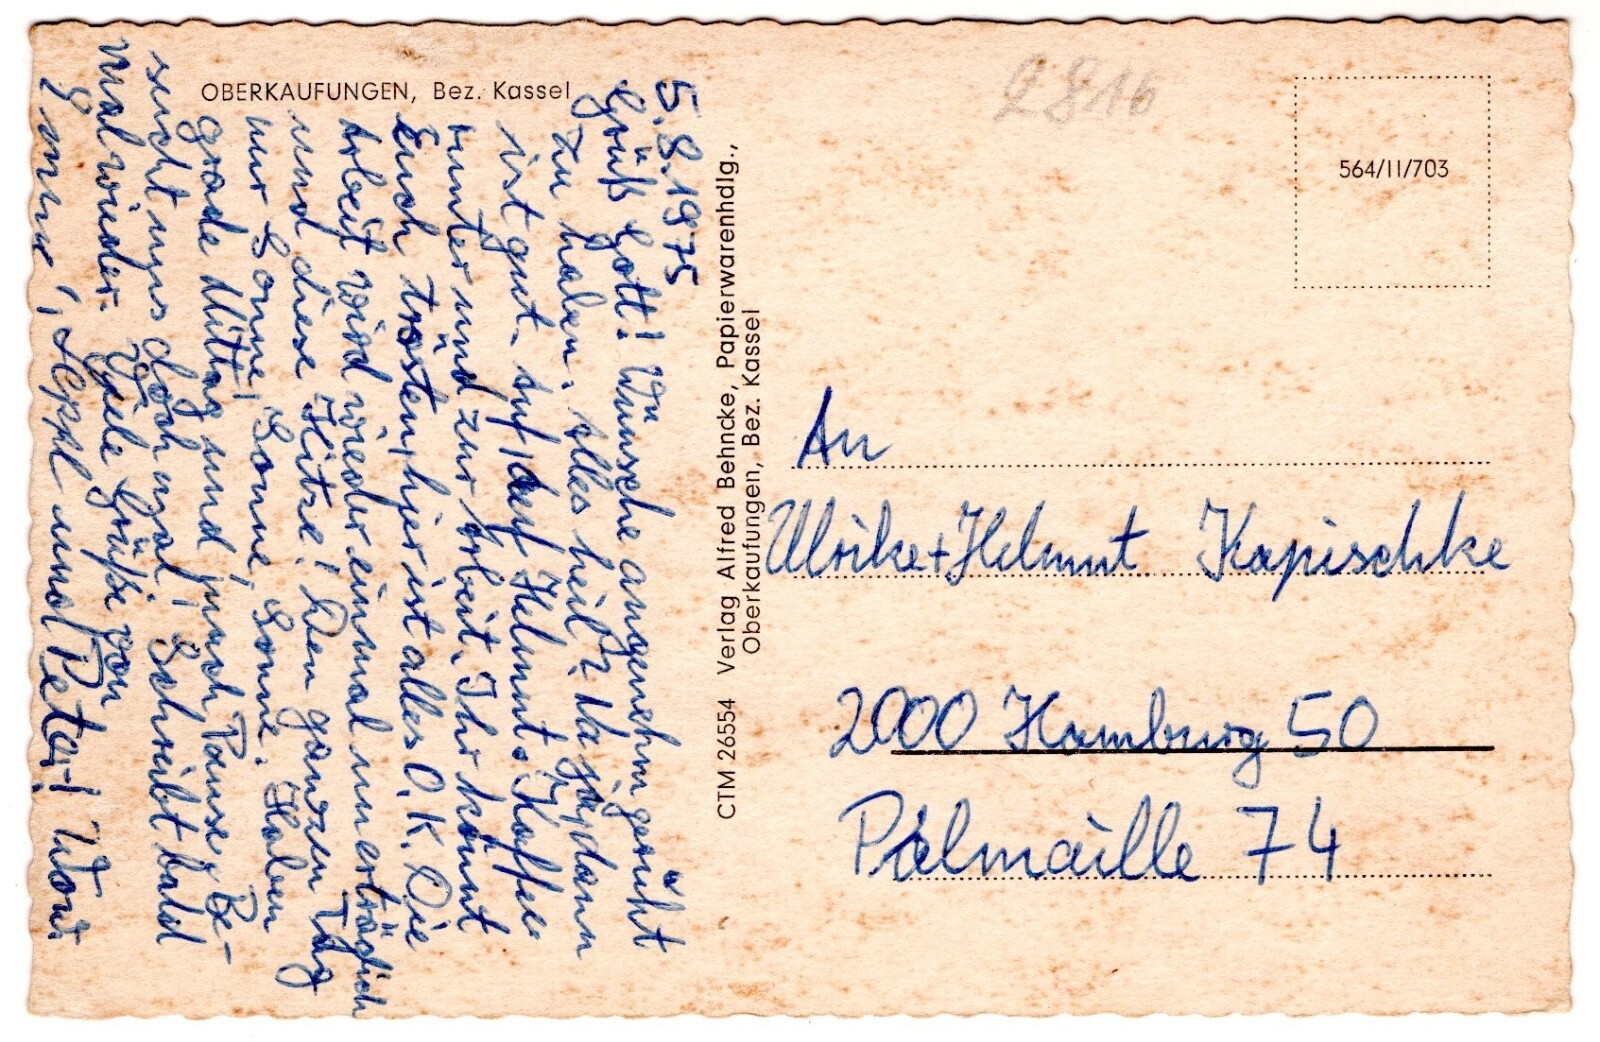 OBERKAUFUNGEN, Bez. Kassel
5.8.1975
Grüß Gott! Wünsche angenehm geruht
zu haben. Alles heil? Na ja, dann
ist gut. Auf, auf Helmut, Kaffee
runter und zur Arbeit. Ihr könnt
Euch trösten, hier ist alles O.K. Die
Arbeit wird wieder einmal unerträglich
und diese Hitze! Den ganzen Tag
nur Sonne, Sonne, Sonne. Haben
grade Mittag und mach Pause. Be-
sucht uns doch mal! Schreibt bald
mal wieder. Viele Grüße von
Seppl und Peter!
CTM 26554 Verlag Alfred Behncke, Papierwarenhdlg.,
Oberkaufungen, Bez. Kassel
2816
564/II/703
An
Ulrike + Helmut Kapischke
2000 Hamburg 50
Palmaille 74